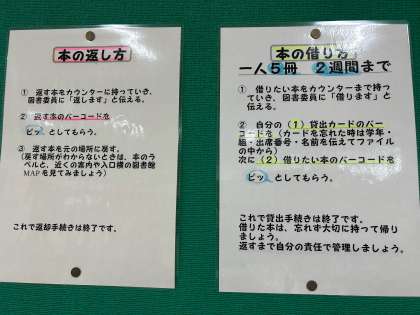 本の返し方
① 返す本をカウンターに持っていき、
図書委員に「返します」と伝える。
② 返す本のバーコードを
ピッ としてもらう。
③ 返す本を元の場所に戻す。
(戻す場所がわからないときは、本のラ
ベルと、近くの案内や入口横の図書館
MAPを見てみましょう)
これで返却手続きは終了です。
本の借り方
一人5冊 2週間まで
① 借りたい本をカウンターまで持っ
ていき、図書委員に「借ります」と
伝える。
② 自分の(1)貸出カードのバー
コードを(カードを忘れた時は学年・
組・出席番号・名前を伝えてファイル
の中から)
次に(2)借りたい本のバーコードを
ピッ としてもらう。
これで貸出手続きは終了です。
借りた本は、忘れず大切に持って帰り
ましょう。
返すまで自分の責任で管理しましょう。